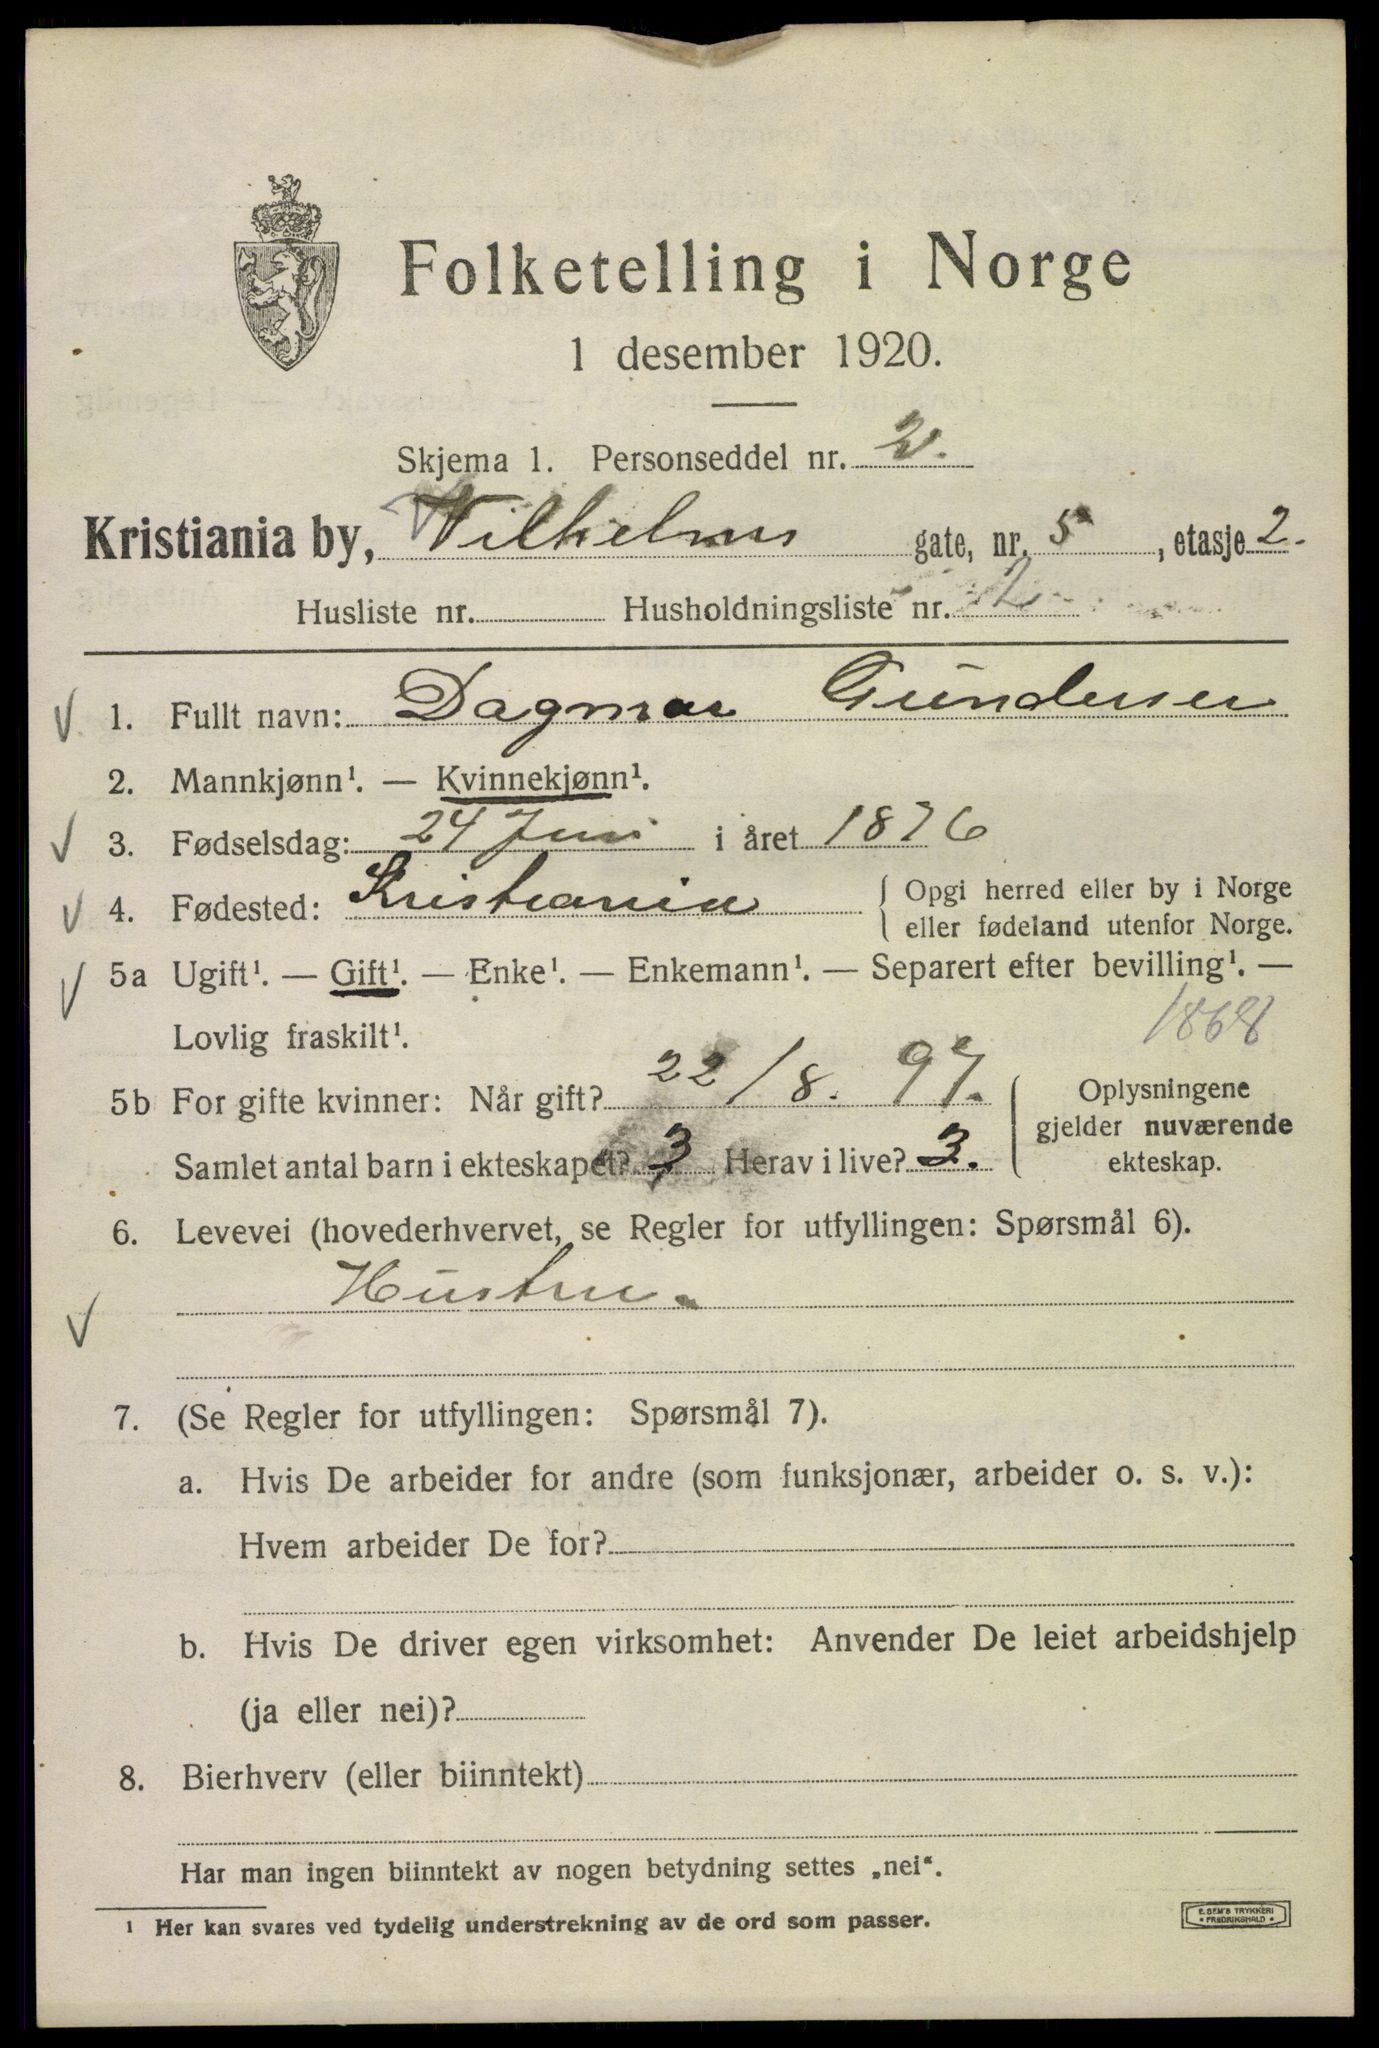 Folketelling i Norge
1 desember 1920.
Skjema 1. Personseddel nr. 2.
Kristiania by, Vilhelms gate, nr. 5, etasje 2.
Husliste nr. Husholdningsliste nr. 2
1. Fullt navn: Dagmar Gundersen
2. Mannkjønn¹. — Kvinnekjønn¹.
3. Fødselsdag: 24 Juni i året 1876
4. Fødested: Kristiania { Opgi herred eller by i Norge
eller fødeland utenfor Norge.
5a Ugift¹. — Gift¹. — Enke¹. — Enkemann¹. — Separert efter bevilling¹. —
Lovlig fraskilt¹.
1868
5b For gifte kvinner: Når gift? 22/8. 97. Oplysningene
gjelder nuværende
Samlet antal barn i ekteskapet? 3 Herav i live? 3. ekteskap.
6. Levevei (hovederhvervet, se Regler for utfyllingen: Spørsmål 6).
Hustru.
7. (Se Regler for utfyllingen: Spørsmål 7).
a. Hvis De arbeider for andre (som funksjonær, arbeider o. s. v.):
Hvem arbeider De for?
b. Hvis De driver egen virksomhet: Anvender De leiet arbeidshjelp
(ja eller nei)?
8. Bierhverv (eller biinntekt)
Har man ingen biinntekt av nogen betydning settes „nei“.
¹ Her kan svares ved tydelig understrekning av de ord som passer.
E. SEM'S TRYKKERI
FREDRIKSHALD